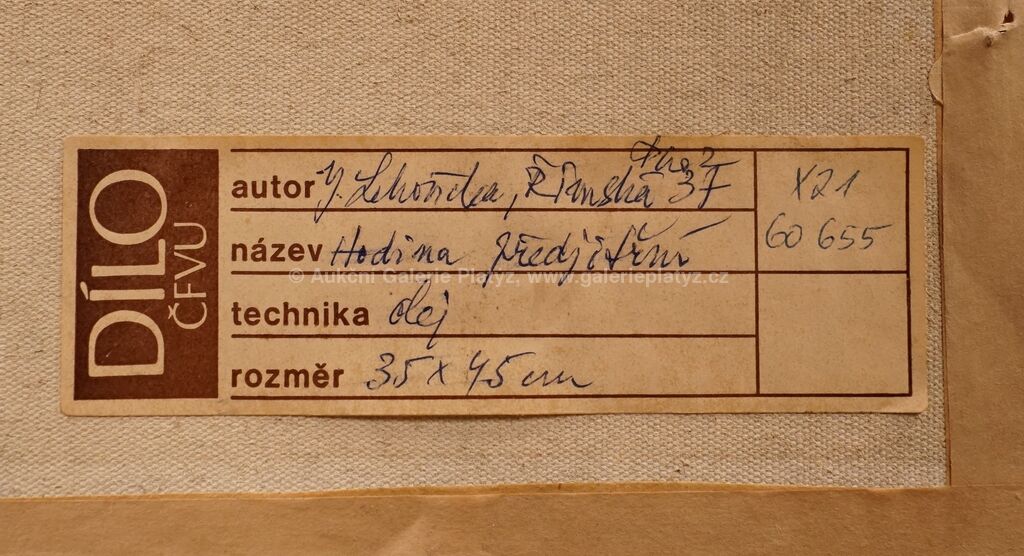 DÍLO
ČFVU
Praha 2
autor J. Lehoučka, Římská 37
název Hodina předjitřní
technika olej
rozměr 35 x 45 cm
X21
60 655
© Aukční Galerie Platýz, www.galerieplatyz.cz